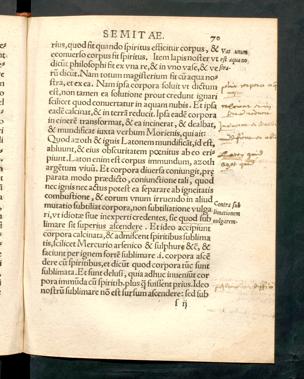 SEMITAE. 70
rius, quod fit quando spiritus efficitur corpus, &
econuerso corpus fit spiritus. Item lapis noster vt
dicūt philosophi fit ex vna re, & in vno vase, & ve
rū dicūt. Nam totum magisterium fit cū aqua no-
stra, et ex ea. Nam ipsa corpora soluit vt dictum
est, non tamen ea solutione prout credunt ignari
scilicet quod conuertatur in aquam nubis. Et ipsa
eadē calcinat, & in terrā reducit. Ipsa eadē corpora
in cinerē transformat, & ea incinerat, & dealbat,
& mundificat iuxta verbum Morienis, qui ait:
Quod azoth & ignis Latonem mundificāt, id est,
abluunt, & eius obscuritatem pœnitus ab eo eri-
piunt. Laton enim est corpus immundum, azoth
argētum viuū. Et corpora diuersa coniungit, prę
parata modo prædicto, coniunctione tali, quod
nec ignis nec actus potest ea separare ab igneitatis
combustione, & eorum vnum
mutatio subtiliat corpora, non subtilians vulga
ri, vt idiotæ siue inexperti credentes, sic quod sub
limare sit superius ascendere. Et ideo accipiunt
corpora calcinata, & admiscent spiritibus sublima
tis, scilicet Mercurio arsenico & sulphure &c, &
faciunt per ignem forsē sublimare .i. corpora ascē
dere cū spiritibus, et dicūt quod corpora tūc sunt
sublimata. Et sunt delusi, quia adhuc inueniūt cor
pora immūda cū spiritib. plus q̃ fuissent prius. Ideo
nostrū sublimare nō est sursum ascendere: sed sub
f ij
Vas unum
est aqua no
stra.
Contra sub
limationem
vulgarem